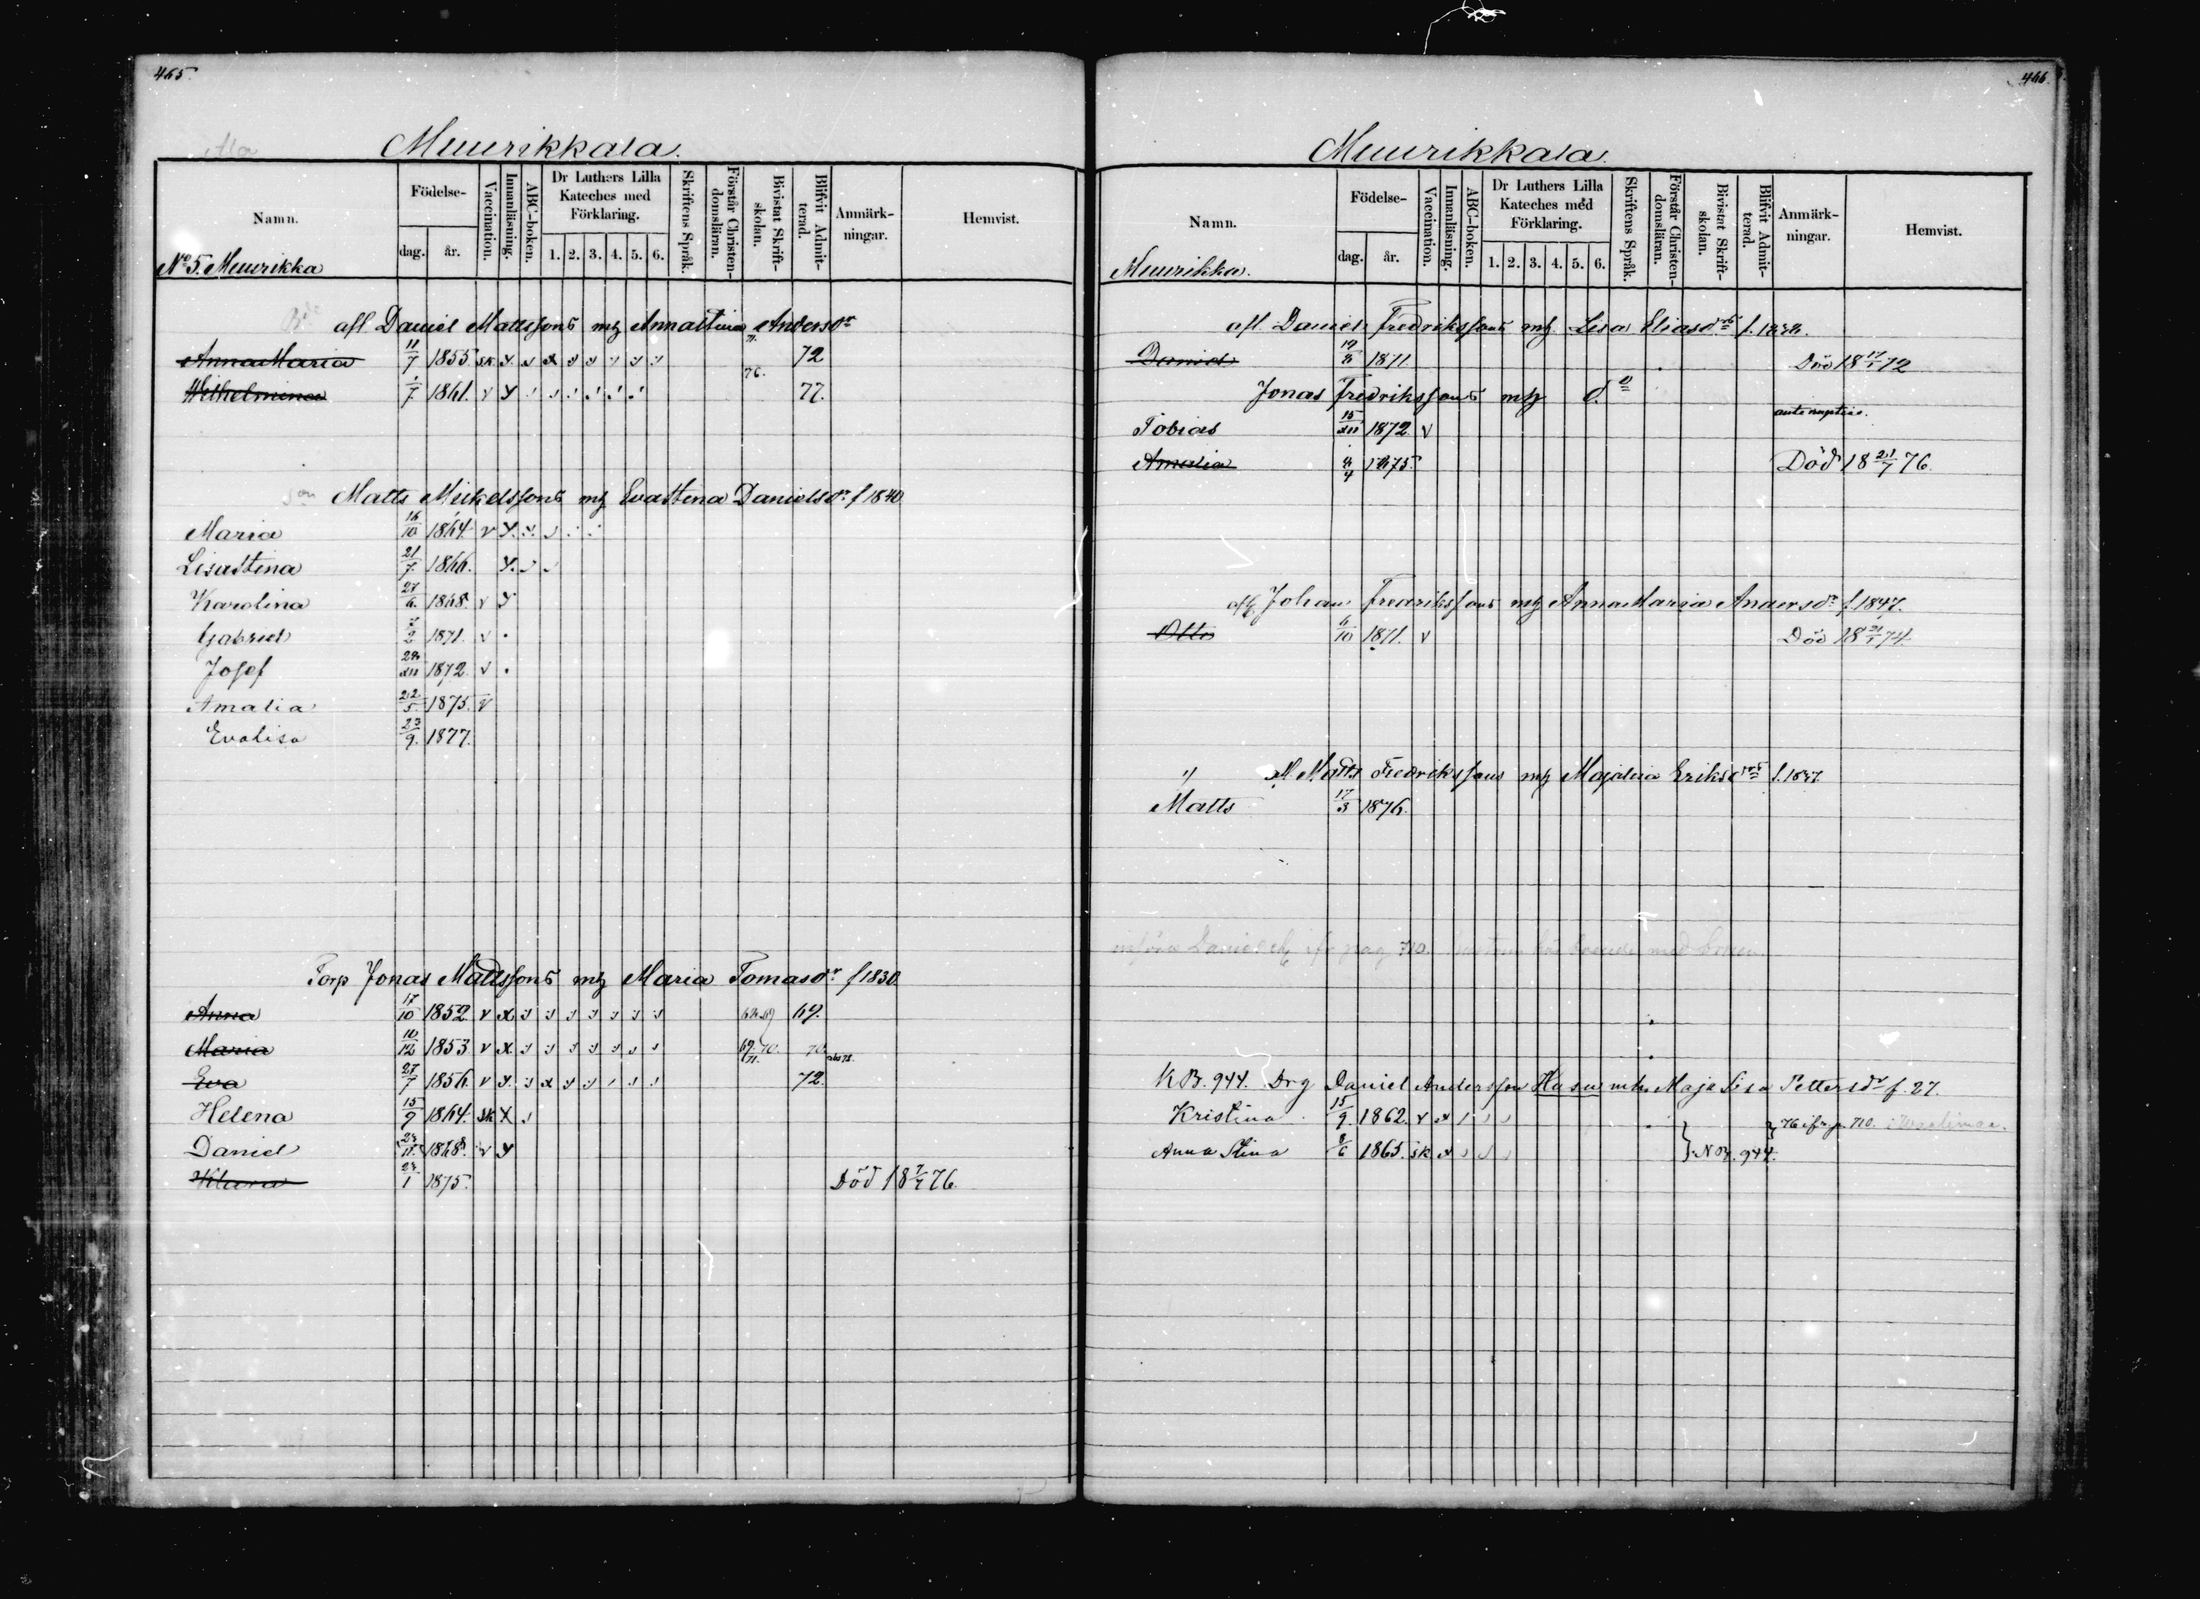 465.
Muurikkala.
Namn.
Födelse-
dag. år.
Vaccination.
Innanläsning.
ABC-boken.
Dr Luthers Lilla Kateches med Förklaring.
1. 2. 3. 4. 5. 6.
Skriftens Språk.
Förstår Christen-domsläran.
Bivistat Skrift-skolan.
Blifvit Admit-terad.
Anmärk-ningar.
Hemvist.
No 5. Muurikka
afl Daniel Mattssons m/ Annastina Andersdr
Anna Maria 11/7 1855 sk 71. 72
Wilhelmina 1/7 1861. v 76. 77.
Matts Mickelssons m/ Evastina Danielsdr f 1840
Maria 16/10 1864. v
Lisastina 21/7 1866.
Karolina 27/6. 1868. v
Gabriel 7/2 1871. v
Josef 1872. v
Amalia 22/5. 1875. v
Evalisa 23/9. 1877.
Torp Jonas Mattssons m/ Maria Tomasdr f 1830
Anna 17/10 1852. v x 69.
Maria 10/12 1853 v x 69/71. 70. 70.
Eva 27/7 1856. v 72.
Helena 15/9 1864. sk x
Daniel 1868. v
Klara 1 1875. Död 18 76.
466.
Muurikkala.
Namn.
Födelse-
dag. år.
Vaccination.
Innanläsning.
ABC-boken.
Dr Luthers Lilla Kateches med Förklaring.
1. 2. 3. 4. 5. 6.
Skriftens Språk.
Förstår Christen-domsläran.
Bivistat Skrift-skolan.
Blifvit Admit-terad.
Anmärk-ningar.
Hemvist.
Muurikka.
afl. Daniel Fredrikssons m/ Lisa Eliasdr
Daniel 1871. Död 18 17/1 72
Jonas Fredrikssons m/ d.o
ante nuptias.
Tobias 15 1872. v
Amalia 4 1875. Död 18 21/7 76.
afl. Johan Fredrikssons m/ Anna Maria Andersdr f. 1847.
Otto 6/10 1871. v Död 18 74.
Matts Fredrikssons m/ Majalena Eriksdr
Matts 17/3 1876.
pag 710.
KB. 944. Drg Daniel Andersson Husu m/h. Maja Lisa Pettersdr f. 27.
Kristina 15/9. 1862. v 76 p. 710.
Anna Stina 8/6 1865. sk 944.